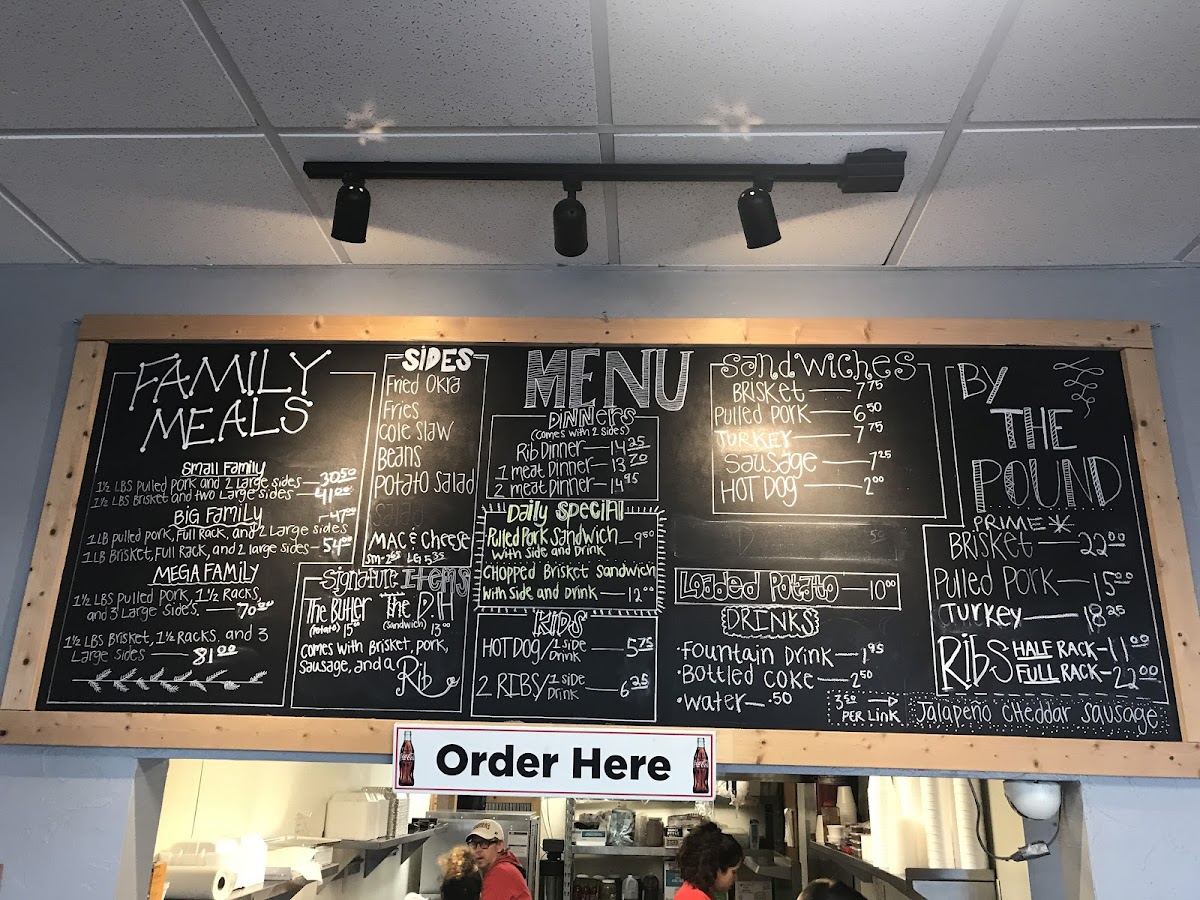 FAMILY
MEALS
Small Family
1½ LBS Pulled Pork and 2 Large sides — 30⁵⁰
1½ LBS Brisket and two Large sides — 41⁰⁰
BIG Family
1 LB pulled pork, Full Rack, and 2 Large sides — 47⁰⁰
1 LB Brisket, Full Rack, and 2 large sides — 54⁰⁰
MEGA FAMILY
1½ LBS Pulled Pork, 1½ Racks,
and 3 Large Sides. — 70⁰⁰
1½ LBS Brisket, 1½ Racks, and 3
Large sides — 81⁰⁰
SIDES
Fried Okra
Fries
Cole Slaw
Beans
Potato Salad
MAC & Cheese
Sm - 2⁶⁵ LG 5³⁵
Signature Items
The Butler The D.H
(Potato) 15⁰⁰ (Sandwich) 13⁰⁰
comes with Brisket, pork,
Sausage, and a
Rib
MENU
DINNERS
(Comes with 2 sides)
Rib Dinner — 14²⁵
1 meat Dinner — 13²⁰
2 meat Dinner — 14⁹⁵
Daily Special
Pulled Pork Sandwich — 9⁵⁰
With Side and Drink
Chopped Brisket Sandwich
With Side and Drink — 12⁰⁰
KIDS
HOT DOG/1 side
Drink — 5⁷⁵
2 RIBS/1 side
Drink — 6²⁵
Sandwiches
Brisket — 7⁷⁵
Pulled Pork — 6⁵⁰
TURKEY — 7⁷⁵
Sausage — 7²⁵
HOT DOG — 2⁰⁰
Loaded Potato — 10⁰⁰
DRINKS
·Fountain Drink — 1⁹⁵
·Bottled Coke — 2⁵⁰
·Water — .50
BY
THE
POUND
PRIME*
Brisket — 22⁰⁰
Pulled Pork — 15⁰⁰
Turkey — 18²⁵
Ribs HALF RACK - 11⁰⁰
FULL RACK - 22⁰⁰
3⁵⁰ →
PER LINK
Jalapeño Cheddar Sausage
Order Here